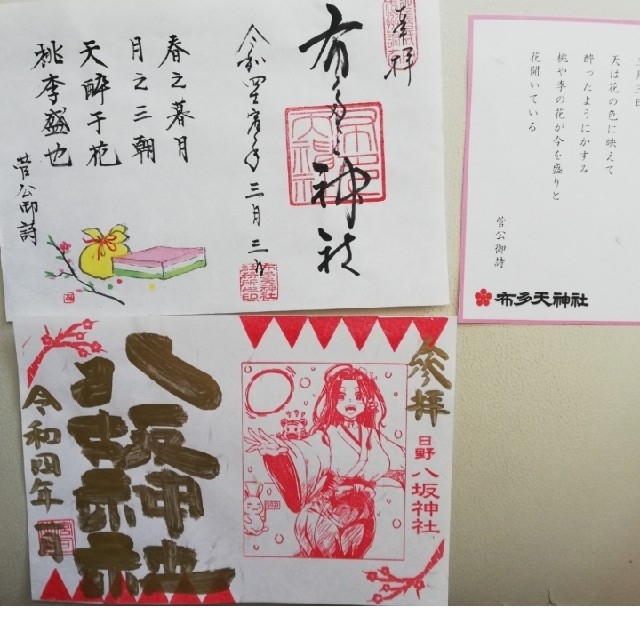 奉拝
布多天神社
三月三日
春之暮月
月之三朝
天酔于花
桃李盛也
菅公御詩
天は花の色に映えて
酔ったようにかすみ
桃や李の花が今を盛りと
花開いている
菅公御詩
布多天神社
参拝
日野 八坂神社
八坂神社
令和四年